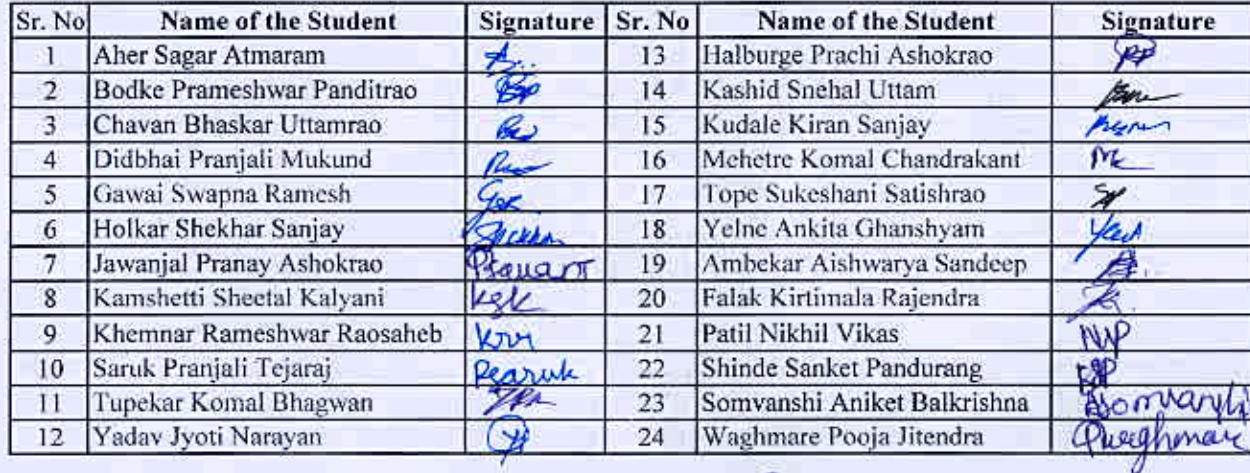 Sr. No Name of the Student Signature Sr. No Name of the Student Signature
1 Aher Sagar Atmaram 13 Halburge Prachi Ashokrao
2 Bodke Prameshwar Panditrao 14 Kashid Snehal Uttam
3 Chavan Bhaskar Uttamrao 15 Kudale Kiran Sanjay
4 Didbhai Pranjali Mukund 16 Mehetre Komal Chandrakant
5 Gawai Swapna Ramesh 17 Tope Sukeshani Satishrao
6 Holkar Shekhar Sanjay 18 Yelne Ankita Ghanshyam
7 Jawanjal Pranay Ashokrao 19 Ambekar Aishwarya Sandeep
8 Kamshetti Sheetal Kalyani kgk 20 Falak Kirtimala Rajendra
9 Khemnar Rameshwar Raosaheb 21 Patil Nikhil Vikas NVP
10 Saruk Pranjali Tejaraj 22 Shinde Sanket Pandurang
11 Tupekar Komal Bhagwan 23 Somvanshi Aniket Balkrishna
12 Yadav Jyoti Narayan 24 Waghmare Pooja Jitendra